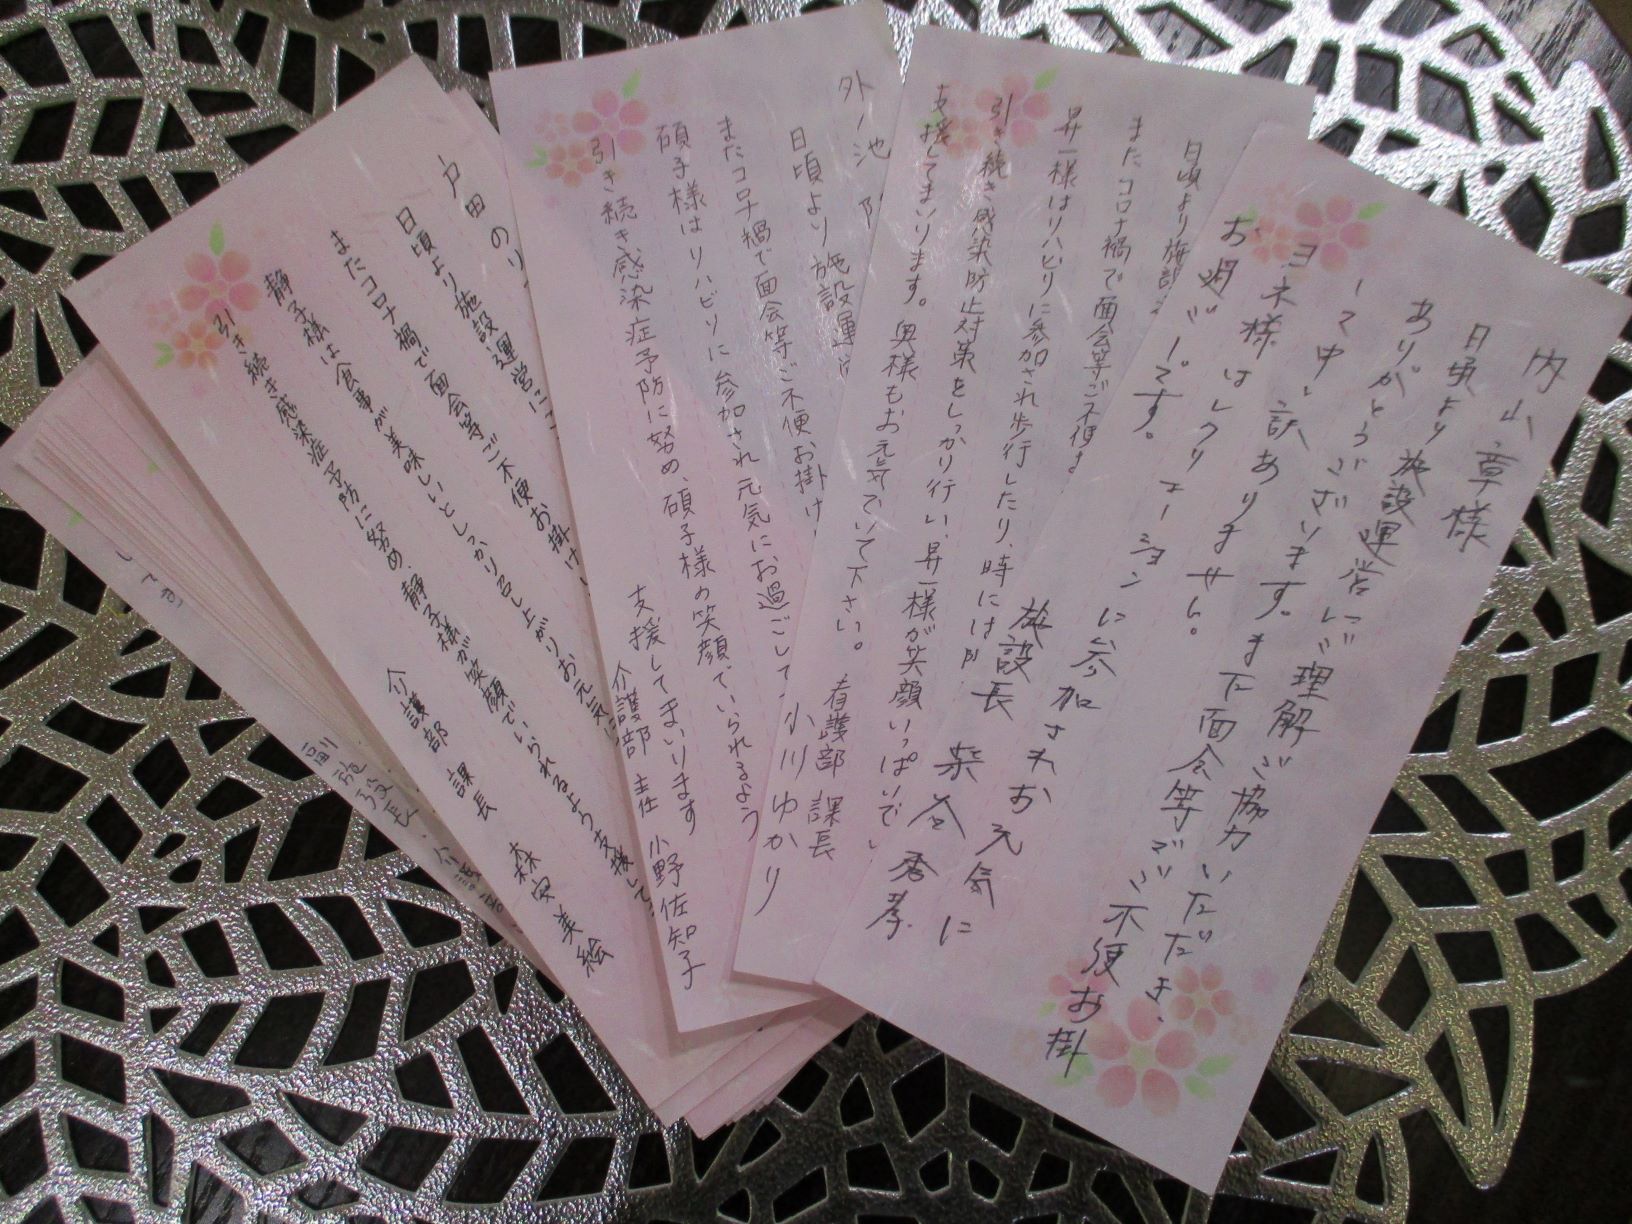 内山 章様
日頃より施設運営にご理解ご協力いただき、
ありがとうございます。また面会等でご不便お掛
して申し訳ありません。
ヨネ様はレクリエーションに参加されお元気に
お過ごしです。
施設長 柴谷秀孝
日頃より施設
またコロナ禍で面会等ご不便
昇一様はリハビリに参加され歩行したり、時には
引き続き感染防止対策をしっかり行い、昇一様が笑顔いっぱいで
支援してまいります。奥様もお元気でいて下さい。
看護部 課長
小川ゆかり
外ノ池
日頃より施設運営
またコロナ禍で面会等ご不便お掛け
碩子様はリハビリに参加され元気にお過ごして
引き続き感染症予防に努め、碩子様の笑顔でいられるよう
支援してまいります
介護部 主任 小野佐知子
戸田のり
日頃より施設運営に
またコロナ禍で面会等ご不便お掛け
静子様は食事が美味しいとしっかり召し上がりお元気に
引き続き感染症予防に努め、静子様が笑顔でいられるよう支援して
介護部 課長 森安美絵
副施設長